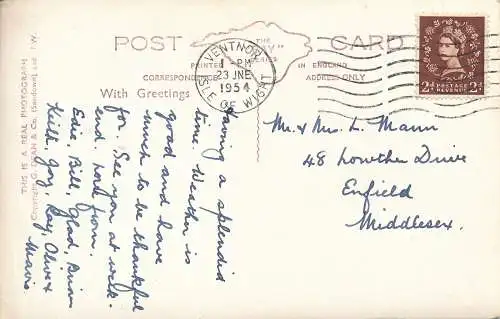 POST CARD
THE "W" SERIES
PRINTED IN ENGLAND
CORRESPONDENCE ADDRESS ONLY
With Greetings
VENTNOR
1 - PM
23 JNE
1954
ISLE OF WIGHT
2d POSTAGE REVENUE 2d
THIS IS A REAL PHOTOGRAPH
Copyright, & Co. (Sandown) Ltd. I.W.
Having a splendid
time. Weather is
good and have
much to be thankful
for. See you at week-
end. Love from.
Edie, Bill, Glad, Brian
Keith, Joy, Ray, Olive &
Mavis
Mr. & Mrs. L. Mann
48 Lowther Drive
Enfield
Middlesex.